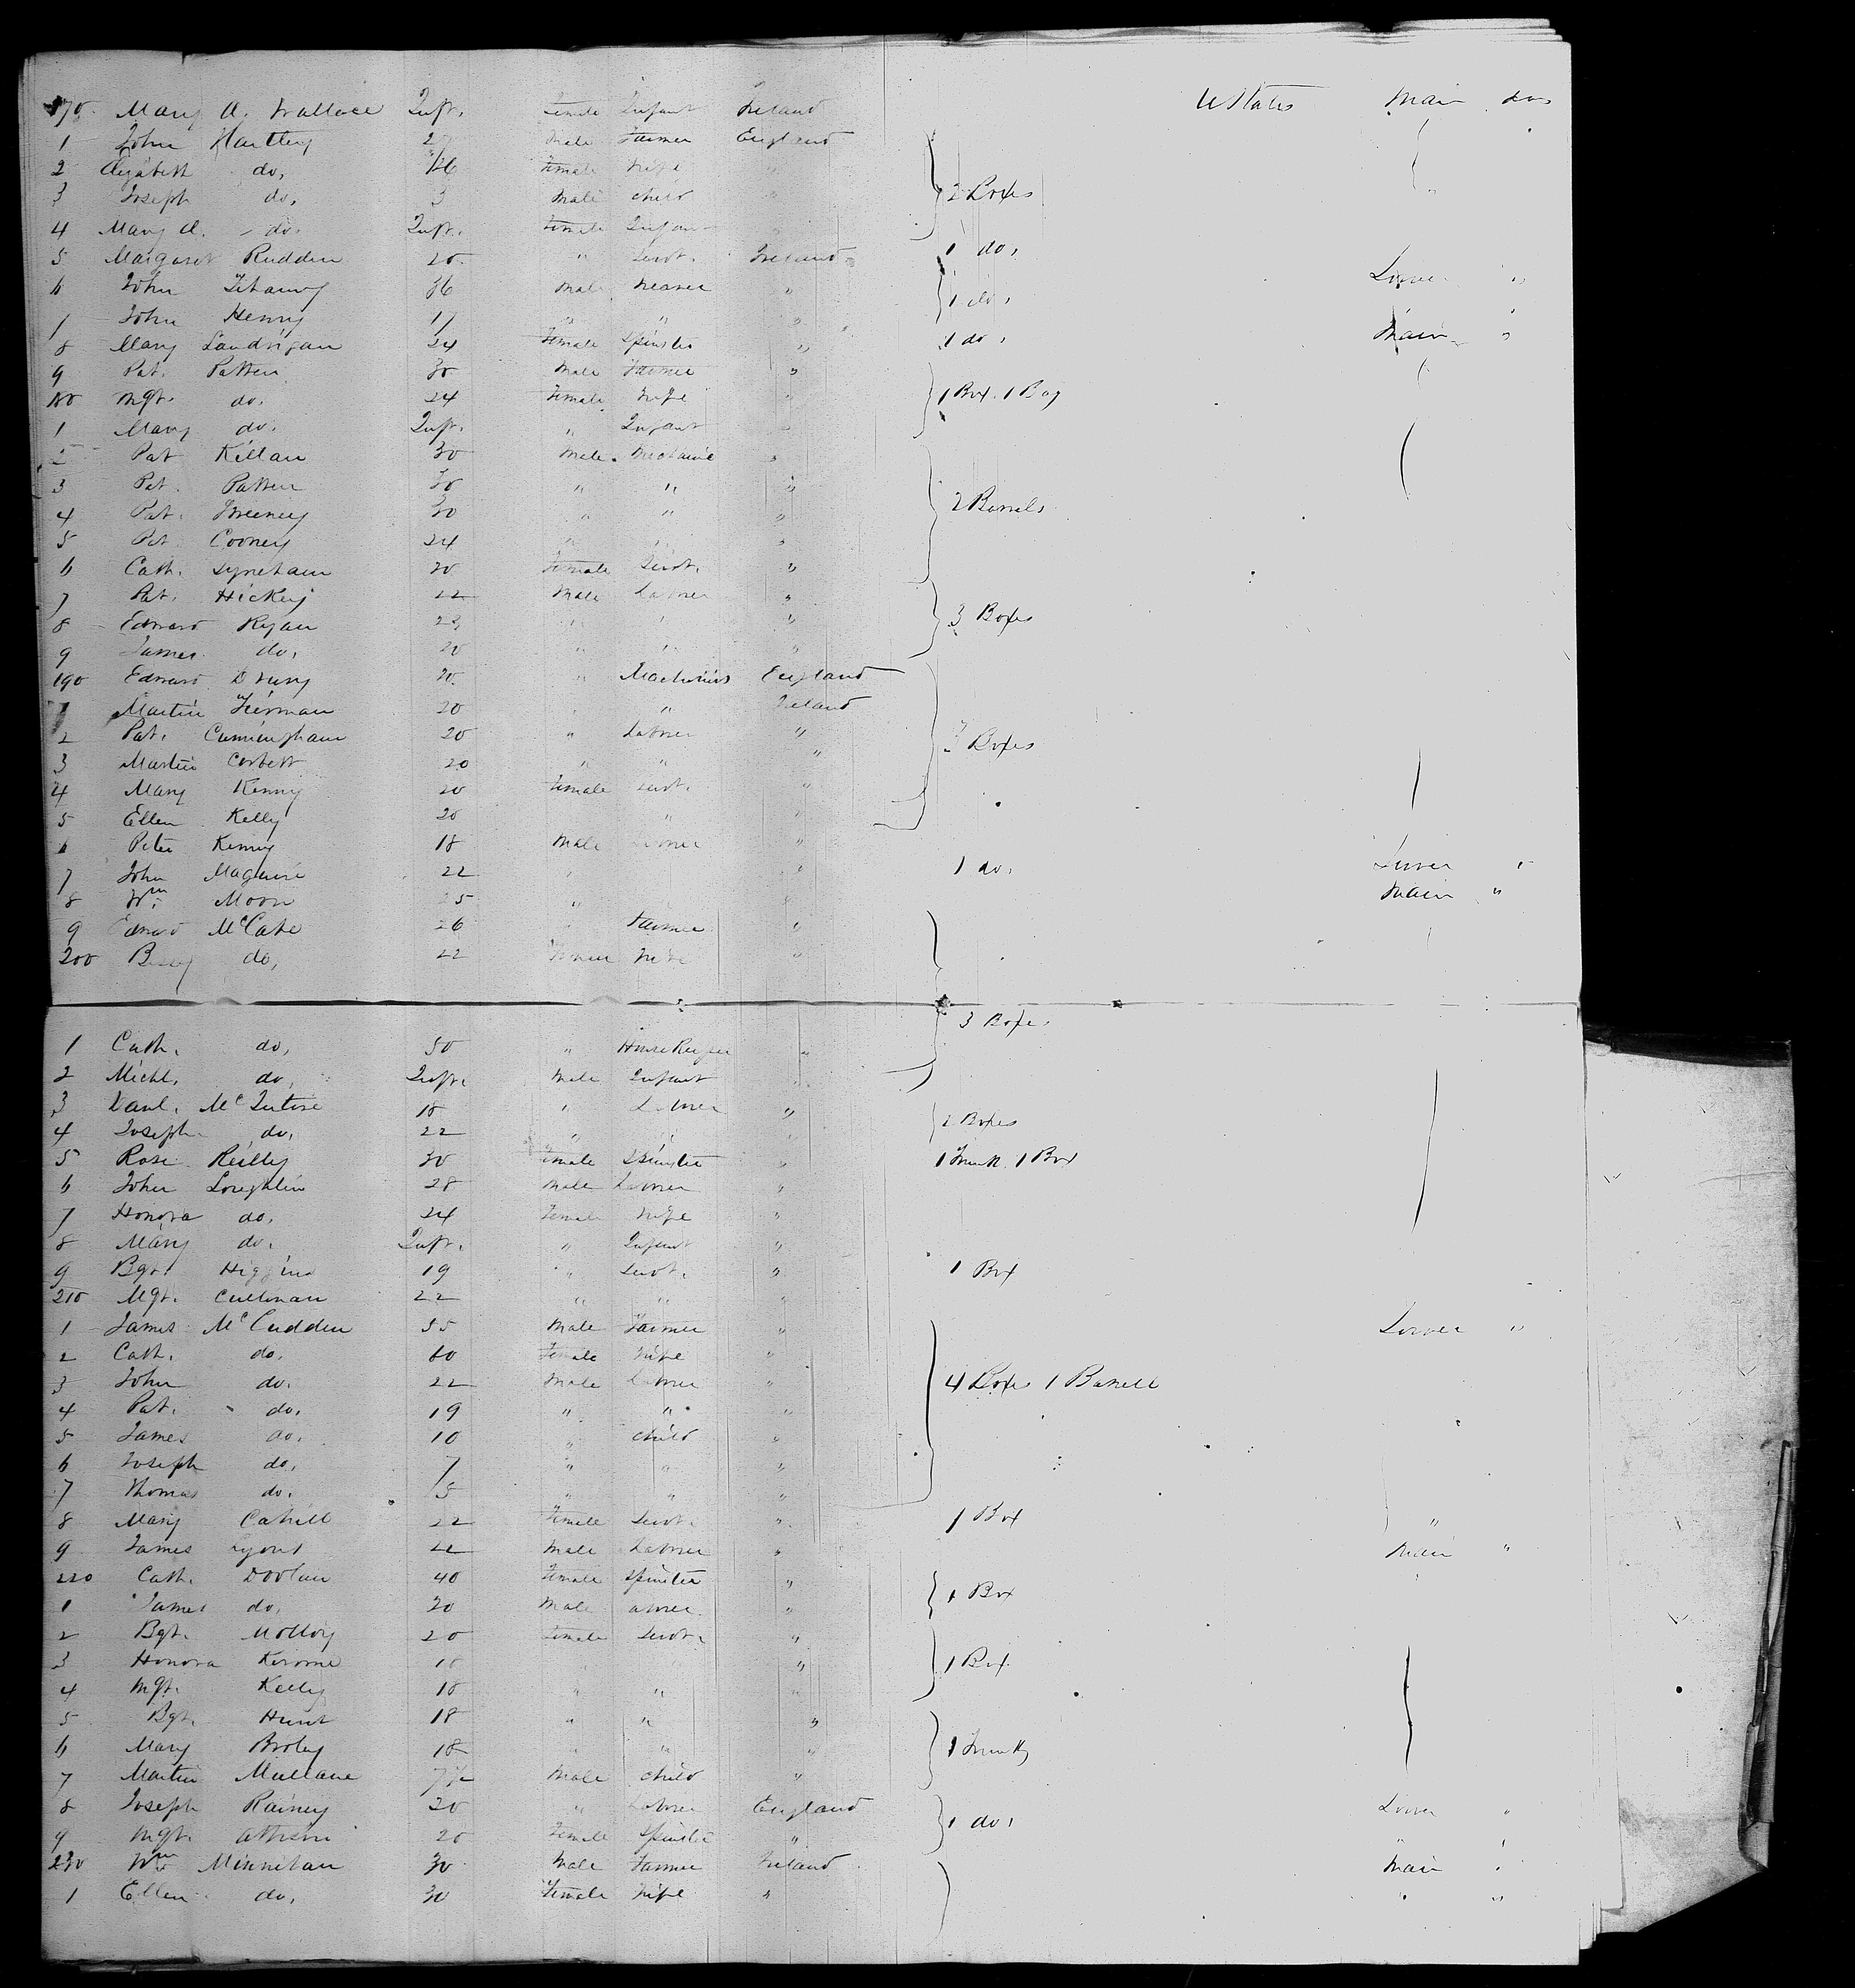 170 Mary A. Wallace Inft. Female Infant Ireland U States Main do
1 John Hartley 2 Male Farmer England
2 Elizabeth do, 26 Female Wife "
3 Joseph do, 3 Male Child " 2 Boxes
4 Mary A. do. Inft. Female Infant
5 Margaret Rudden 20 " Servt. Ireland 1 do,
6 John 36 Male Weaver " 1 do, Lower "
7 John Henry 17 " " "
8 Mary Landrigan 24 Female Spinster " 1 do, Main "
9 Pat. Patten 30 Male Farmer "
180 Mgt. do. 24 Female Wife " 1 Box. 1 Bag
1 Mary do. Inft. " Infant "
2 Pat Killan 30 Male Mechanic "
3 Pat. Patten 30 " " "
4 Pat. Sweeney 30 " " " 2 Barrels
5 Pat Cooney 24 " " "
6 Cath. Lyneham 20 Female Servt. "
7 Pat. Hickey 22 Male Labrer "
8 Edward Ryan 23 " " " 3 Boxes
9 James do, 20 " " "
190 Edward Drury 20 " Machinist England
1 Martin Tiernan 20 " " Ireland
2 Pat. Cunningham 20 " Labrer " 3 Boxes
3 Martin Corbett 20 " " "
4 Mary Kenny 20 Female Servt. "
5 Ellen Kelly 20 " "
6 Peter Kenny 18 Male Labrer "
7 John Maguire 22 " " 1 do, Lower "
8 Wm. Moore 25 " " Main "
9 Edward McCabe 26 " Farmer "
200 Bessy do, 22 Female Wife "
3 Boxes
1 Cath. do, 50 " House Keeper "
2 Michl. do, Inft. Male Infant "
3 Danl. McIntire 18 " Labrer " 2 Boxes
4 Joseph do, 22 " " "
5 Rose Reilly 30 Female Spinster " 1 Trunk. 1 Box
6 John Loughlin 28 Male Labrer "
7 Honora do, 24 Female Wife "
8 Mary do. Inft. " Infant "
9 Bgt. Higgins 19 " Servt. " 1 Box
210 Mgt. Cullinan 22 " " "
1 James McCudden 55 Male Farmer " Lower "
2 Cath. do. 60 Female Wife "
3 John do. 22 Male Labrer " 4 Boxes 1 Barrell
4 Pat. do, 19 " " "
5 James do. 10 " Child "
6 Joseph do, 7 " " "
7 Thomas do. 5 " " "
8 Mary Cahill 22 Female Servt. " 1 Box "
9 James Lyons 22 Male Labrer " Main "
220 Cath. Doolan 40 Female Spinster "
1 James do, 20 Male Labrer " 1 Box
2 Bgt. Molloy 20 Female Servt. "
3 Honora 18 " 1 Box
4 Mgt. Kelly 18 " " "
5 Bgt. Hunt 18 " " "
6 Mary 18 " " " 1 Trunk
7 Martin Mullane 7 Male Child "
8 Joseph Rainey 20 " Labrer England Lower "
9 Mgt. 20 Female Spinster " 1 do, "
230 Wm Minnehan 30 Male Farmer Ireland Main "
1 Ellen do, 30 Female Wife " " "